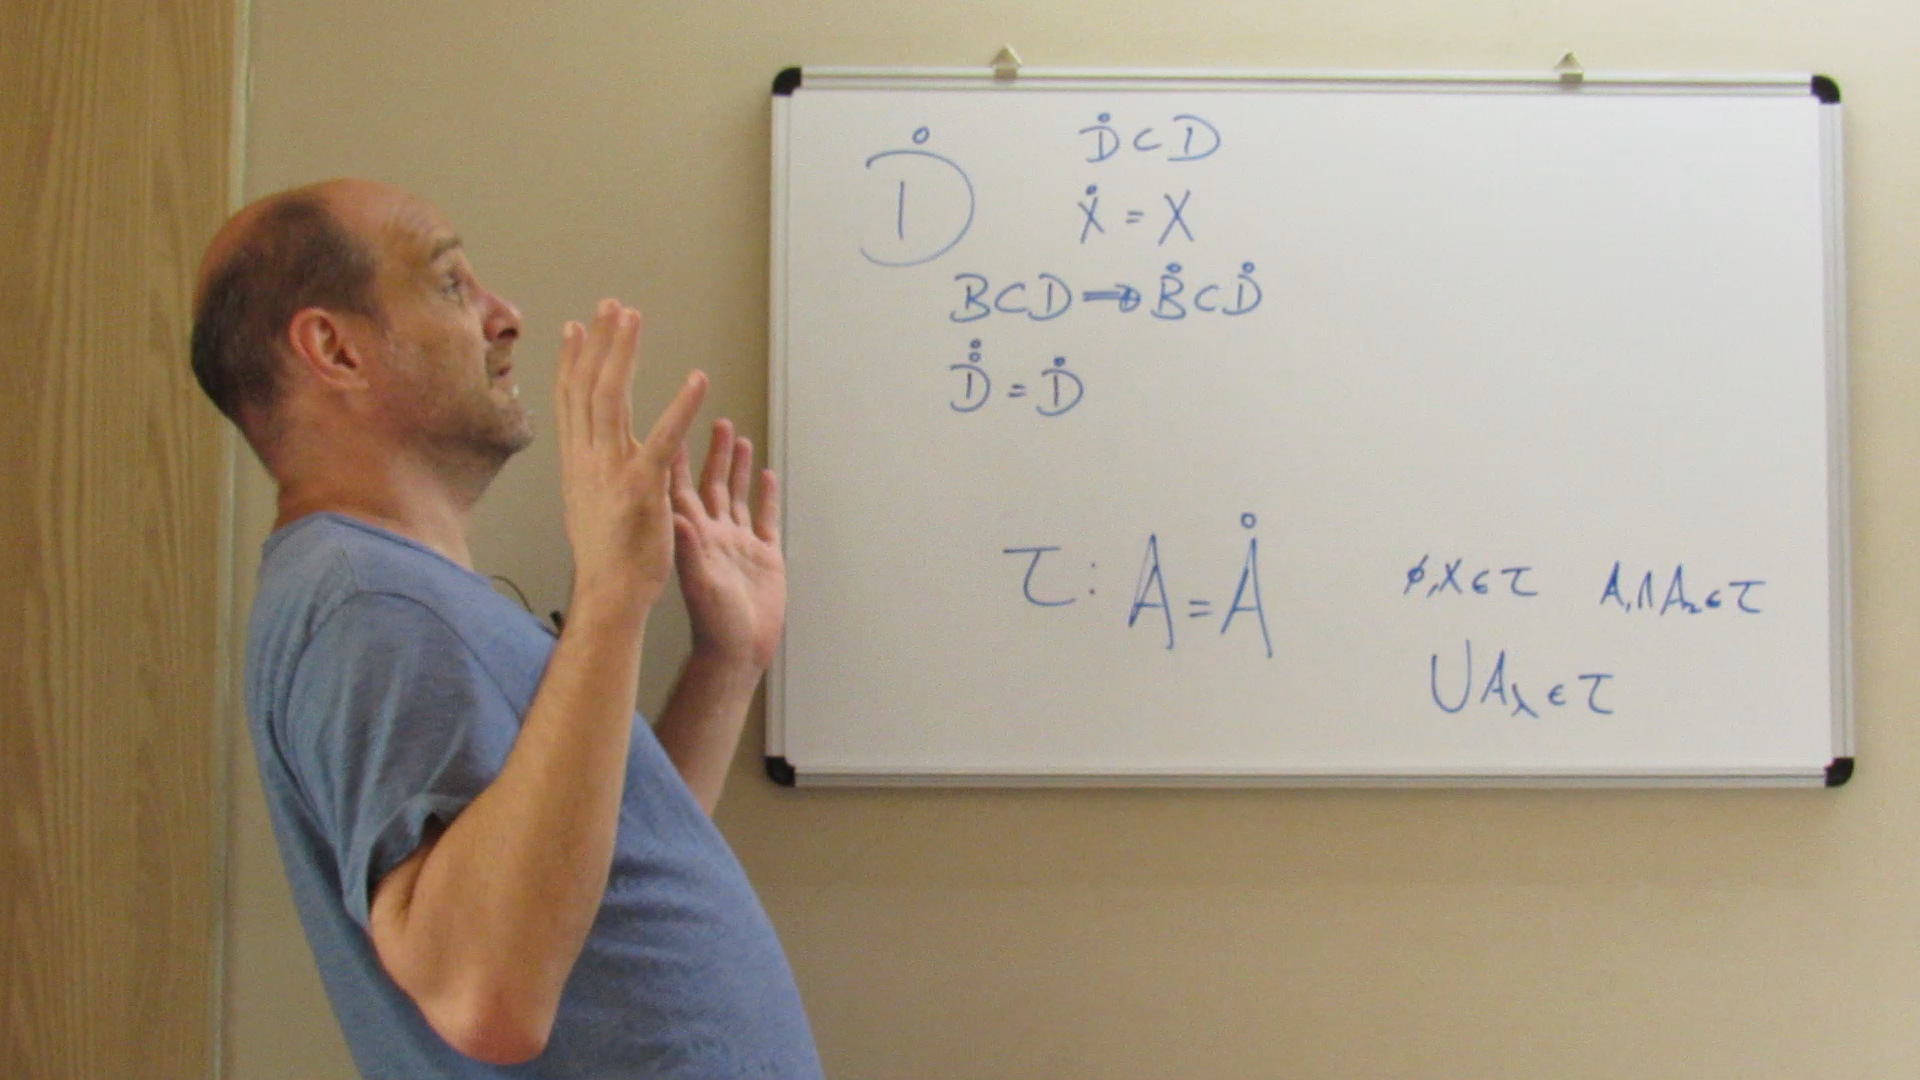 D̊
D̊ ⊂ D
X̊ = X
B ⊂ D ⇒ B̊ ⊂ D̊
D̊̊ = D̊
τ: A = Å
∅, X ∈ τ
A₁ ∩ A₂ ∈ τ
∪ A_λ ∈ τ